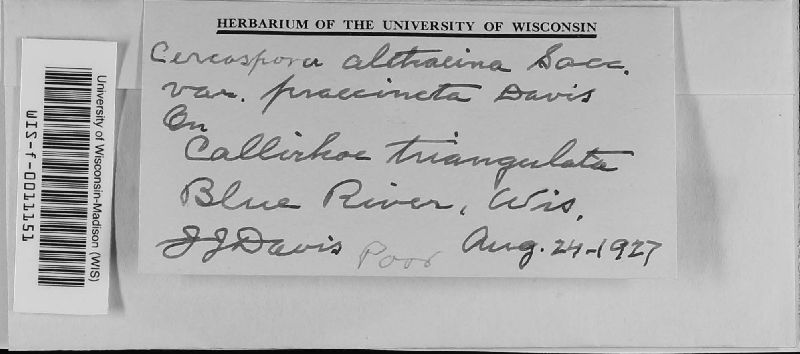 HERBARIUM OF THE UNIVERSITY OF WISCONSIN
Cercospora althaeina Sacc.
var. praecincta Davis
On
Callirhoe triangulata
Blue River, Wis.
JJDavis Poor Aug. 24-1927
University of Wisconsin-Madison (WIS)
WIS-f-0011151